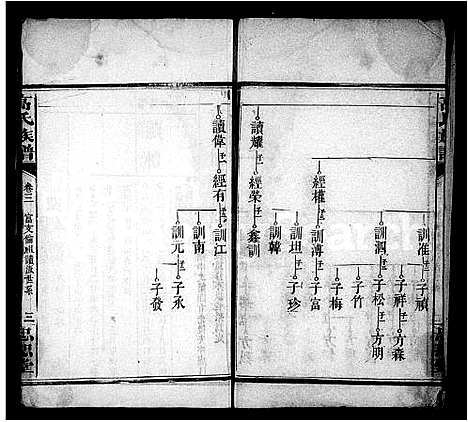 訓淮
子禎
訓泗
子祥
方森
子松
方明
子竹
子梅
經權
訓溥
子富
訓坦
子珍
訓韓
讀耀
經榮
鑫訓
讀偉
經有
訓江
訓南
訓元
子永
子發
高氏族譜
卷三
三